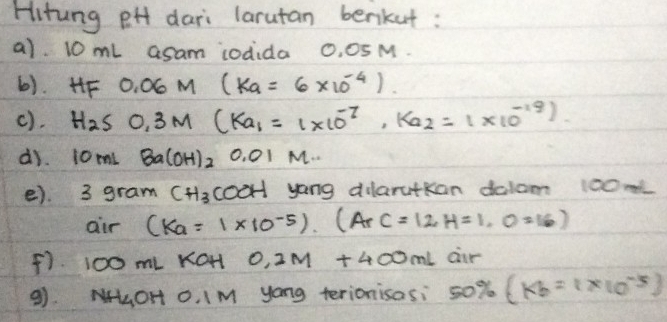 Hitung pH dari larutan berikut :
a). 10 mL asam iodida 0.05 M.
b). HF 0,06 M (Ka = 6 x 10⁻⁴).
c). H₂S 0,3 M (Ka₁ = 1x10⁻⁷, Ka₂ = 1x10⁻¹⁹).
d). 10 mL Ba(OH)₂ 0.01 M..
e). 3 gram CH₃COOH yang dilarutkan dalam 100 mL
air (Ka = 1 x 10⁻⁵). (Ar C = 12, H = 1, O = 16)
f). 100 mL KOH 0,2 M + 400 mL air
g). NH₄OH 0.1 M yang terionisasi 50% (Kb = 1 x 10⁻⁵)